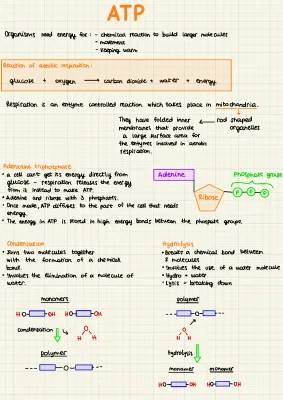 ATP
Organisms need energy for: - chemical reaction to build larger molecules
- movement
- keeping warm
Reaction of aerobic respiration:
glucose + oxygen → carbon dioxide + water + energy
Respiration is an enzyme controlled reaction which takes place in mitochondria.
They have folded inner
membranes that provide
a large surface area for
the enzymes involved in aerobic
respiration.
rod shaped
organelles
Adenosine triphosphate
• a cell can't get its energy directly from
glucose - respiration releases the energy
from it instead to make ATP.
• Adenine and ribose with 3 phosphates.
• Once made, ATP diffuses to the part of the cell that needs
energy.
• The energy in ATP is stored in high energy bonds between the phosphate groups.
Adenine
Phosphate groups
P P P
Ribose
Condensation
• Joins two molecules together
with the formation of a chemical
bond.
• Involves the elimination of a molecule of
water.
monomers
HO OH HO OH
condensation
H O H
polymer
O
Hydrolysis
• Breaks a chemical bond between
2 molecules
• Involves the use of a water molecule
• Hydro = water
• Lysis = breaking down
polymer
O
H O H
Hydrolysis
monomer monomer
HO OH HO OH